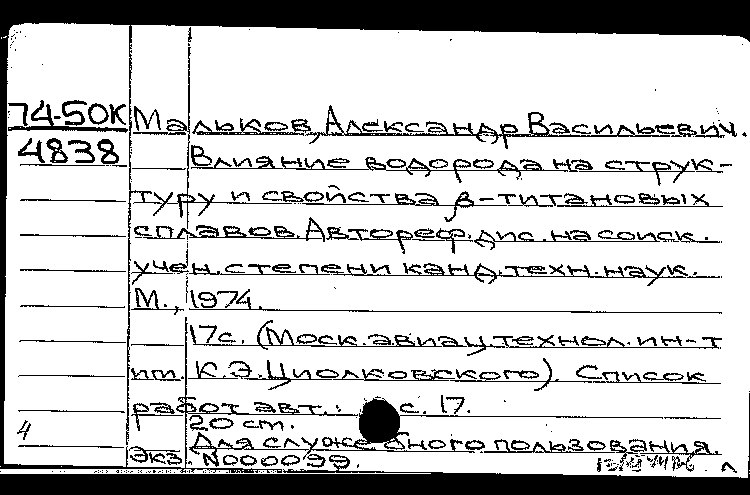 74-50К Мальков, Александр Васильевич.
4838 Влияние водорода на струк-
туру и свойства β-титановых
сплавов. Автореф. дис. на соиск.
учен. степени канд. техн. наук.
М., 1974.
17с. (Моск. авиац. технол. ин-т
им. К.Э. Циолковского). Список
работ авт.: с. 17.
20 см.
4 Для служебного пользования.
Экз. №000099.